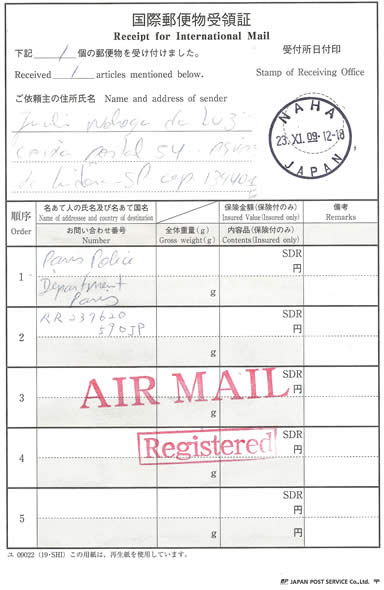 国際郵便物受領証
Receipt for International Mail
下記 1 個の郵便物を受け付けました。
受付所日付印
Received 1 articles mentioned below.
Stamp of Receiving Office
ご依頼主の住所氏名 Name and address of sender
da Luz
caixa postal 54
SP cep
NAHA
23.XI.09.12-18
JAPAN
順序
Order
名あて人の氏名及び名あて国名
Name of addressee and country of destination
お問い合わせ番号
Number
全体重量(g)
Gross weight(g)
保険金額(保険付のみ)
Insured Value(Insured only)
内容品(保険付のみ)
Contents(Insured only)
備考
Remarks
1
Paris Police
Départment
Paris
g
SDR
円
2
RR 237620
590JP
g
SDR
円
3
g
SDR
円
AIR MAIL
4
g
SDR
円
Registered
5
g
SDR
円
ユ 09022(19・SHI)この用紙は、再生紙を使用しています。
JP JAPAN POST SERVICE Co.,Ltd. 〒